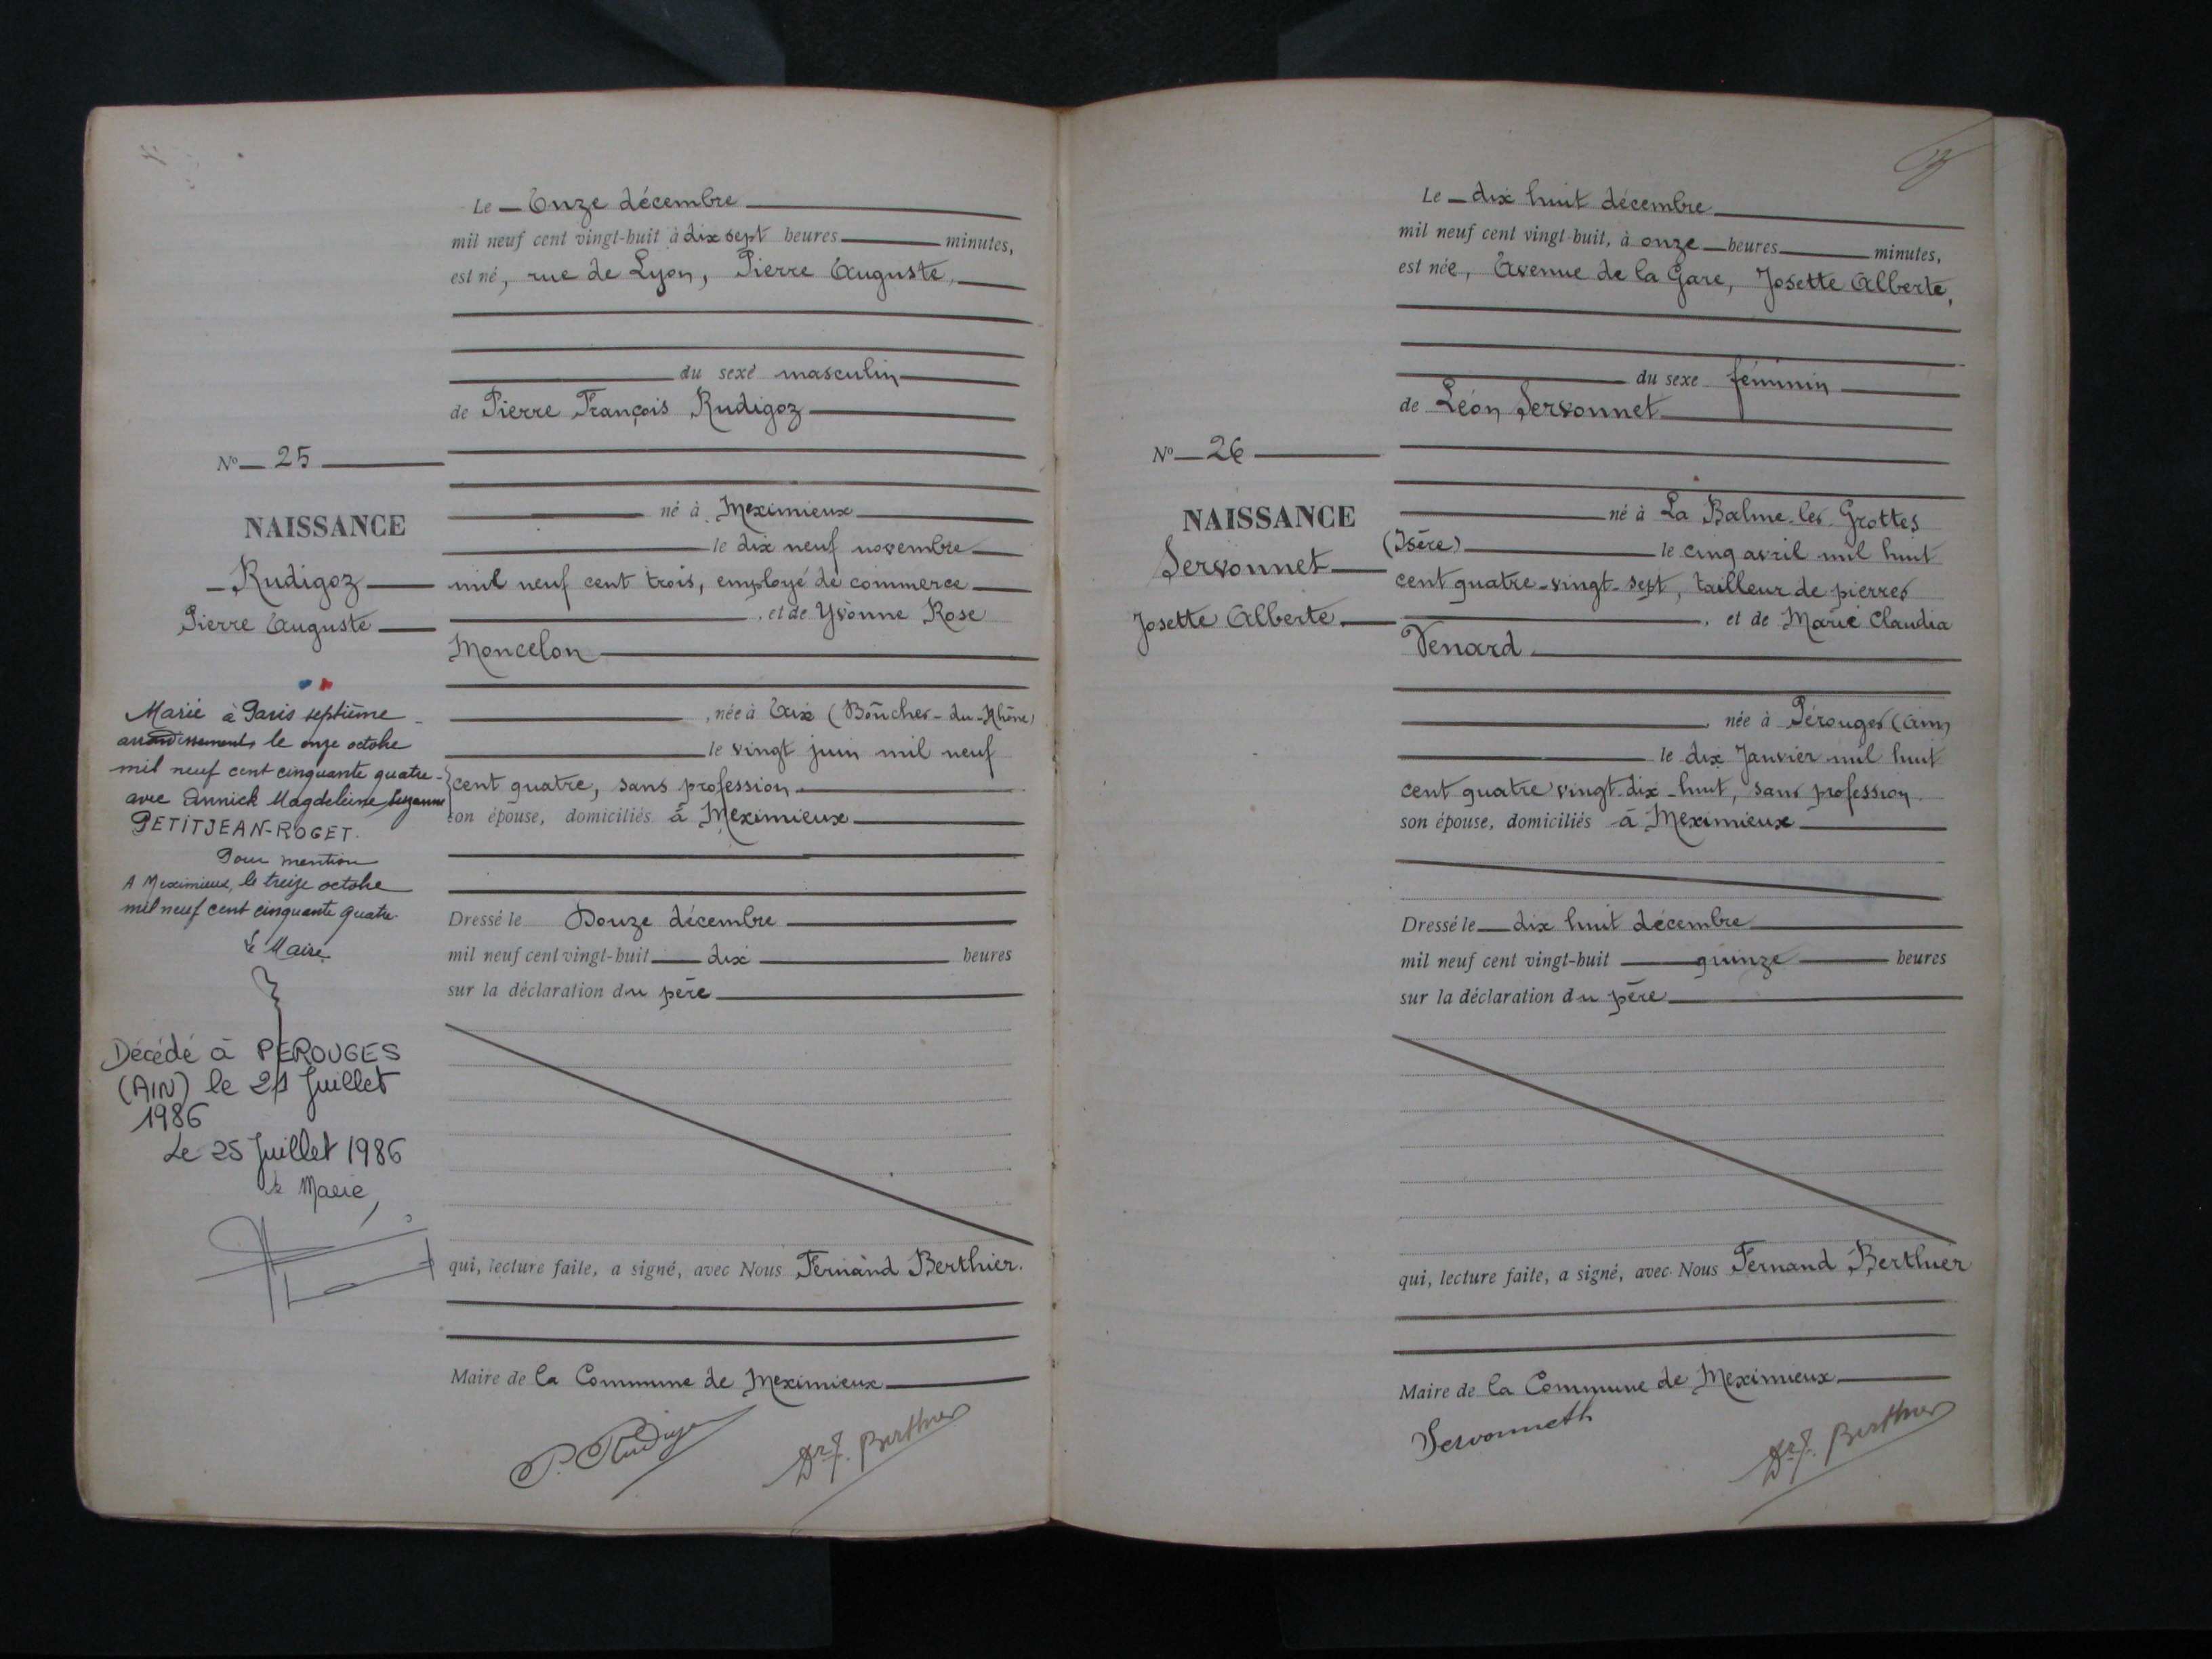 Le Onze décembre
mil neuf cent vingt-huit à dix sept heures minutes,
est né, rue de Lyon, Pierre Auguste,
du sexe masculin
de Pierre François Rudigoz
né à Meximieux
le dix neuf novembre
mil neuf cent trois, employé de commerce
, et de Yvonne Rose
Moncelon
, née à Aix (Bouches-du-Rhône)
le vingt juin mil neuf
cent quatre, sans profession
son épouse, domiciliés à Meximieux
Dressé le Douze décembre
mil neuf cent vingt-huit dix heures
sur la déclaration du père
qui, lecture faite, a signé, avec Nous Fernand Berthier.
Maire de la Commune de Meximieux
P. Rudigoz
Dr F. Berthier
No 25
NAISSANCE
Rudigoz
Pierre Auguste
Marié à Paris septième
arrondissements le onze octobre
mil neuf cent cinquante quatre
avec Annick Magdeleine Suzanne
PETITJEAN-ROGET.
Pour mention
A Meximieux, le treize octobre
mil neuf cent cinquante quatre.
Le Maire
Décédé à PEROUGES
(AIN) le 21 Juillet
1986
Le 25 Juillet 1986
le Maire,
Le dix huit décembre
mil neuf cent vingt-huit, à onze heures minutes,
est née, Avenue de la Gare, Josette Alberte,
du sexe féminin
de Léon Servonnet
né à La Balme-les-Grottes
(Isère) le cinq avril mil huit
cent quatre-vingt-sept, tailleur de pierres
, et de Marie Claudia
Venard
née à Pérouges (Ain)
le dix Janvier mil huit
cent quatre vingt dix-huit, sans profession
son épouse, domiciliés à Meximieux
Dressé le dix huit décembre
mil neuf cent vingt-huit quinze heures
sur la déclaration du père
qui, lecture faite, a signé, avec Nous Fernand Berthier
Maire de la Commune de Meximieux
Servonneth
Dr F. Berthier
No 26
NAISSANCE
Servonnet
Josette Alberte